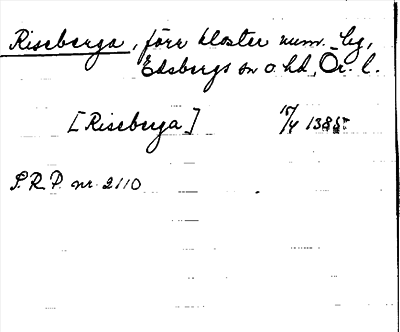 Riseberga, förr kloster num. lg,
Edsbergs sn o. hd, Ör. l.
[Riseberga] 15/4 1385
S.R.P. nr. 2110